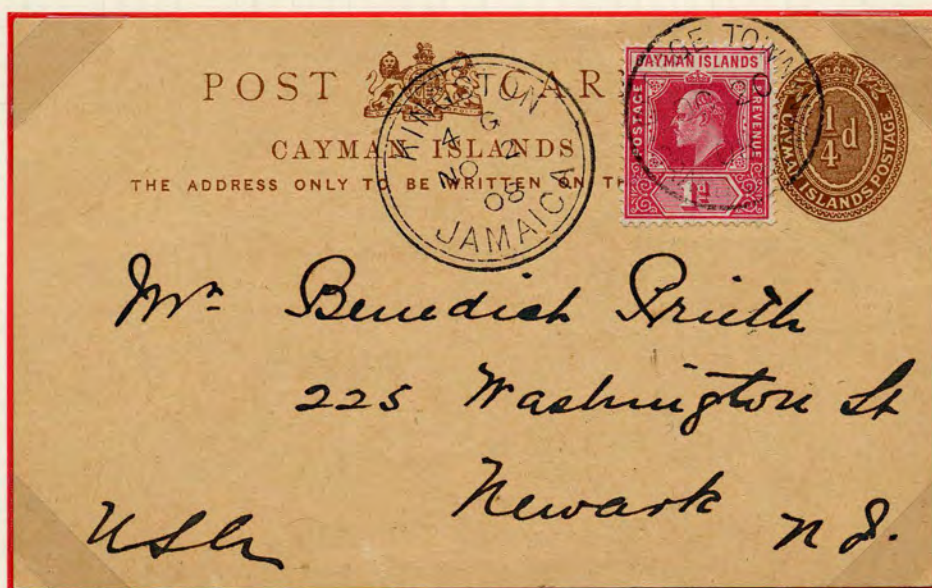 POST CAR
CAYMAN ISLANDS
THE ADDRESS ONLY TO BE WRITTEN ON TH
KINGSTON
4 G
NO 2
08
JAMAICA
GE TOWN
CAYMAN ISLANDS
POSTAGE
REVENUE
1d
1/4d
CAYMAN ISLANDS POSTAGE
Mr. Benedich Prieth
225 Washington St
Newark
N J.
USA